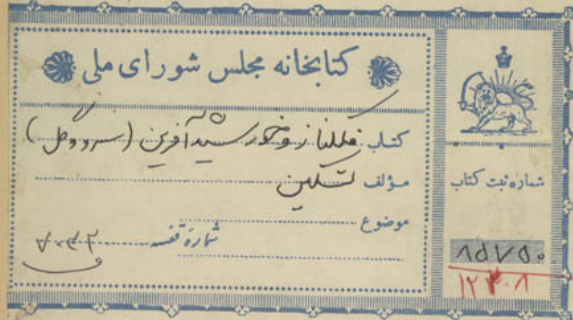 کتابخانه مجلس شورای ملی
کتاب فلکناز و خورشید آفرین (سرو و گل)
مؤلف تسکین
موضوع
شماره قفسه
شماره ثبت کتاب
۸۵۷۵۰
۱۲۳۰۸